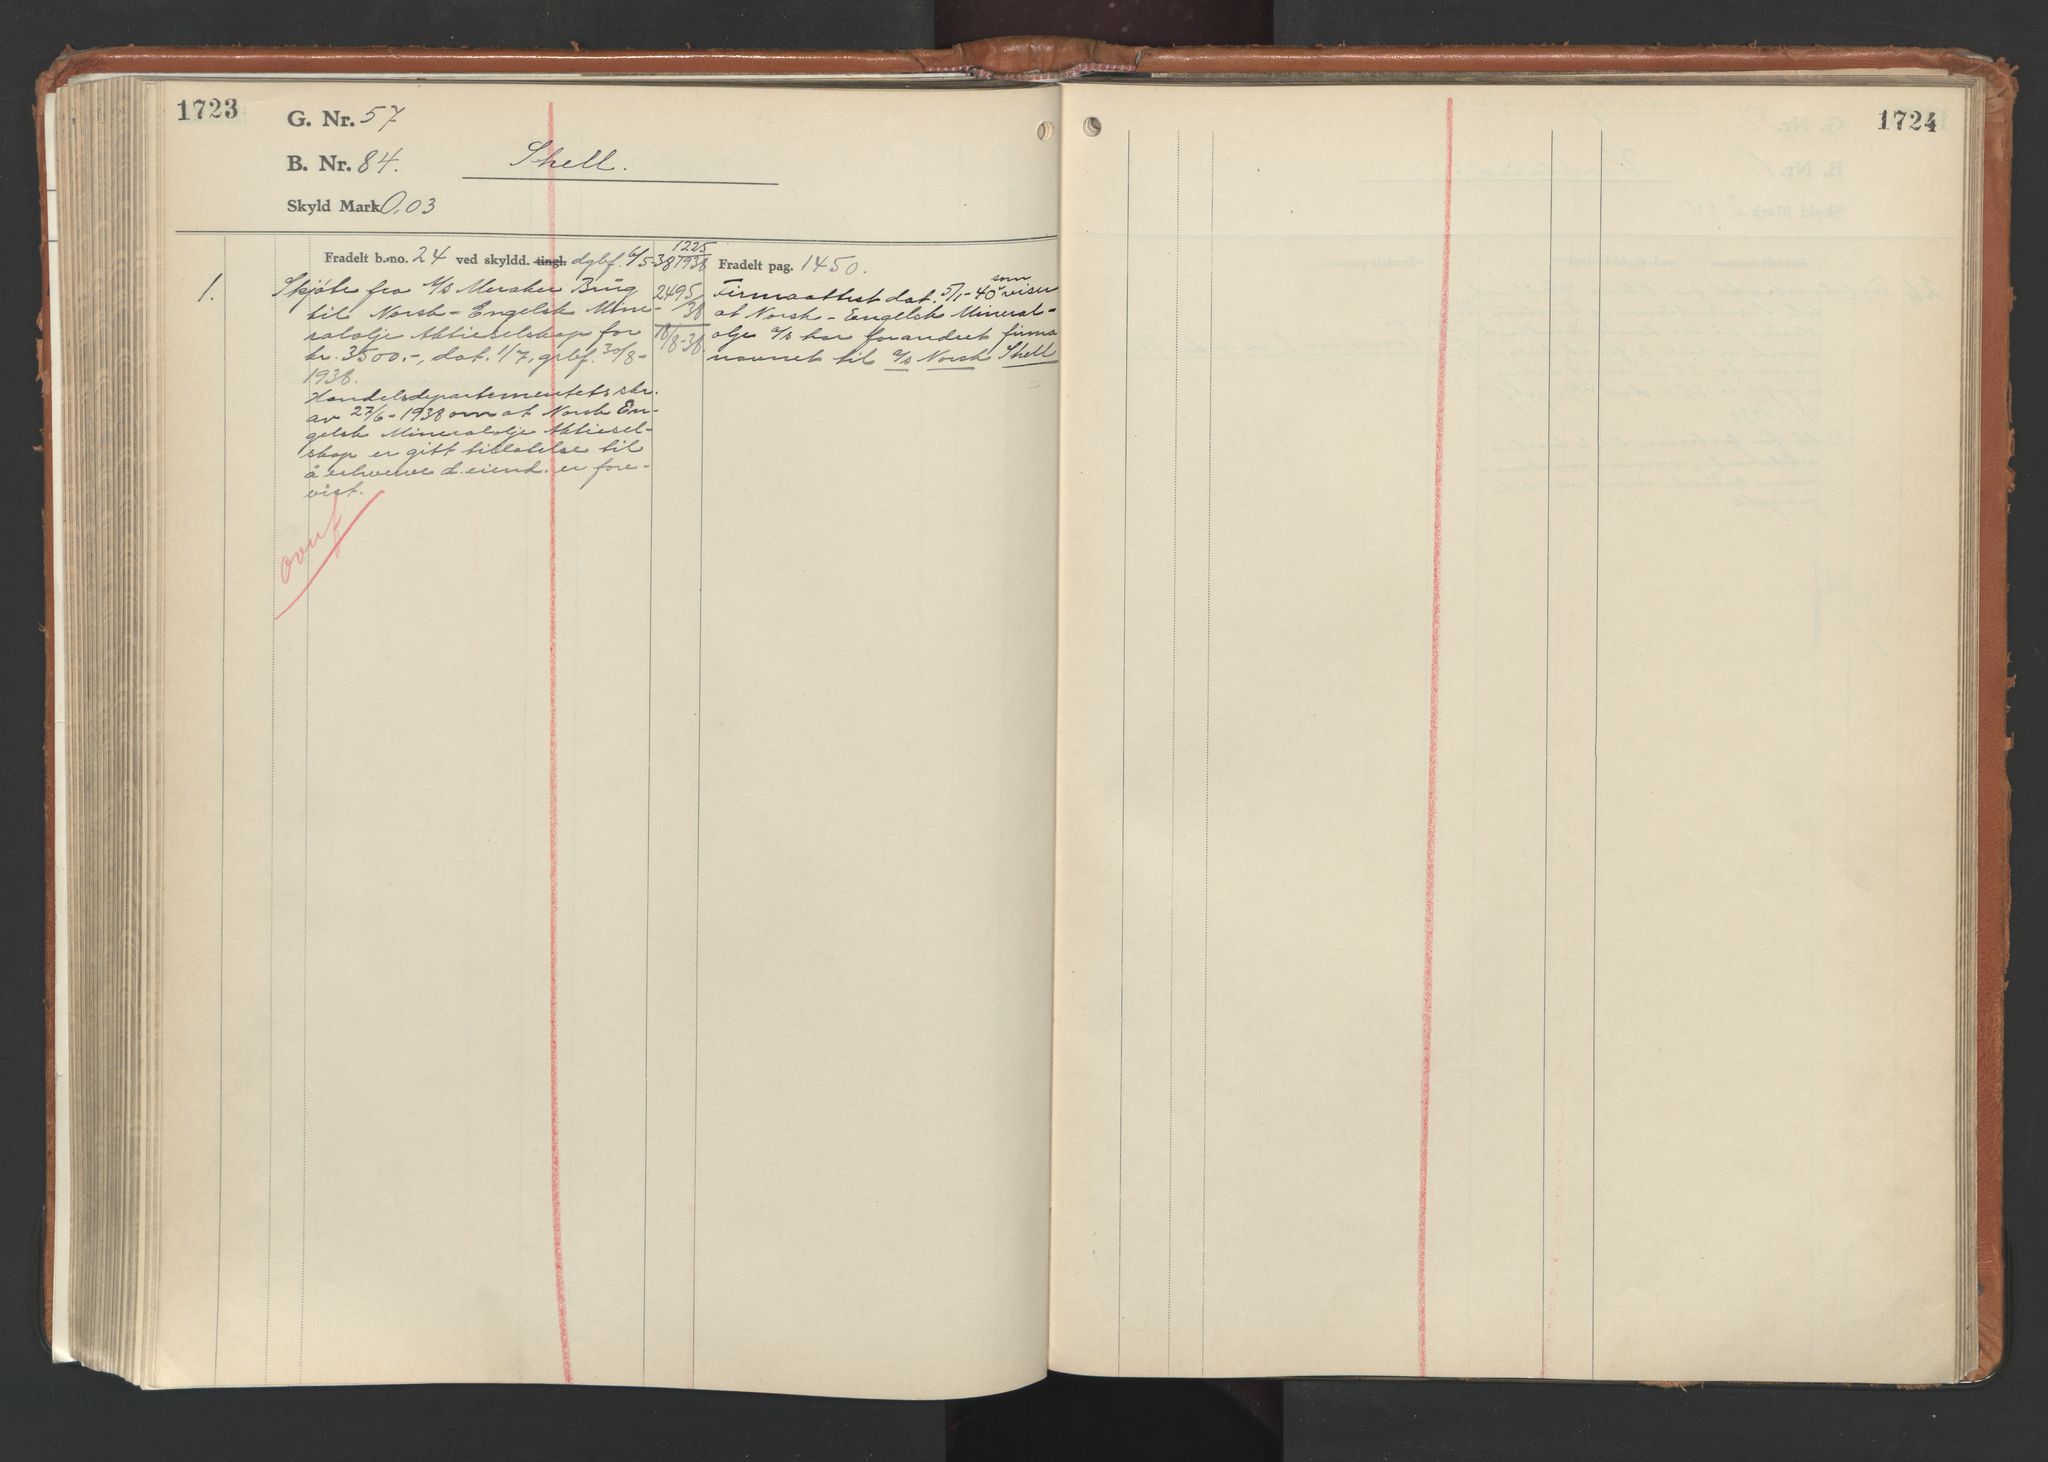 1723
G. Nr. 57
B. Nr. 84. Shell.
Skyld Mark 0,03
Fradelt b.-no. 24 ved skyldd. tingl. dgbf. 6/5-38 1225/1938 Fradelt pag. 1450.
1. Skjøte fra A/S Meraker Brug
til Norsk-Engelsk Mine-
ralolje Aktieselskap for
kr. 3500.-, dat. 1/7, grbf. 30/8-
1938.
2495/38
18/8-38
Handelsdepartementets skr.
av 27/6-1938 om at Norsk En-
gelsk Mineralolje Aktiesel-
skap er gitt tillatelse til
å erhverve d. eiend. er fore-
vist.
overf
Firmaattest dat. 5/1-40 som viser
at Norsk-Engelsk Mineral-
olje a/s har forandret firma
navnet til a/s Norsk Shell
1724